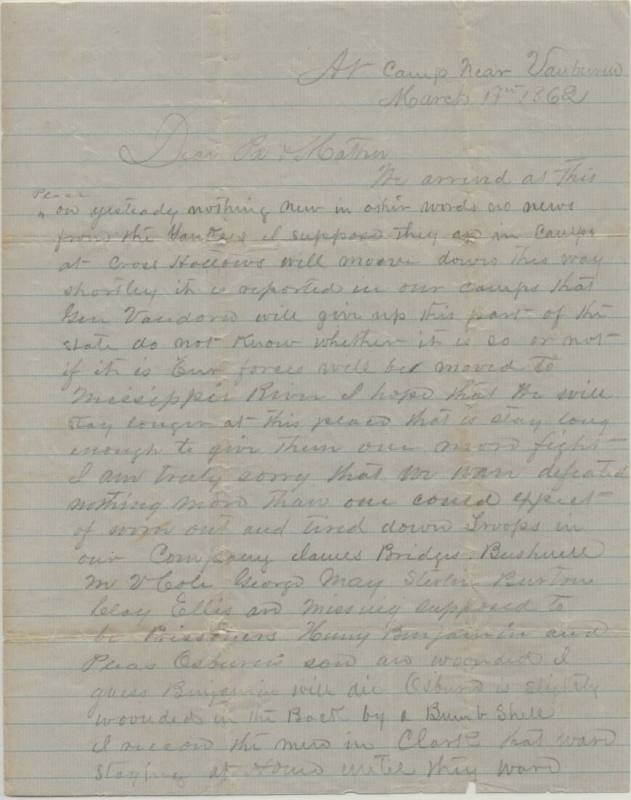 At Camp Near Vanburen
March 17th 1862
Dear Pa & Mother
We arrived at This
Place
on yesteady nothing new in other words no news
from the Yankees I suppose they are in Camps
at Cross Hollows will moove down this way
shortly it is reported in our camps that
Gen Vandorn will give up this part of the
state do not know whether it is so or not
if it is Eur forces will be moved to
Missippi River I hope that we will
stay longer at this place that is stay long
enough to give them one more fight
I am truly sorry that we ware defeated
nothing more than one could expect
of worn out and tired down Troops in
our Company James Bridges Bushnell
M V Cole George May Burton
Clay Ellis are missing supposed to
be Prissoners Henry Benjamin and
Pleas Osburns son are woounded I
guess Benjamin will die Osburn is slightly
woounded in the Back by a Bumb Shell
I reccon the men in Clark that ware
staying at Home untill they ware